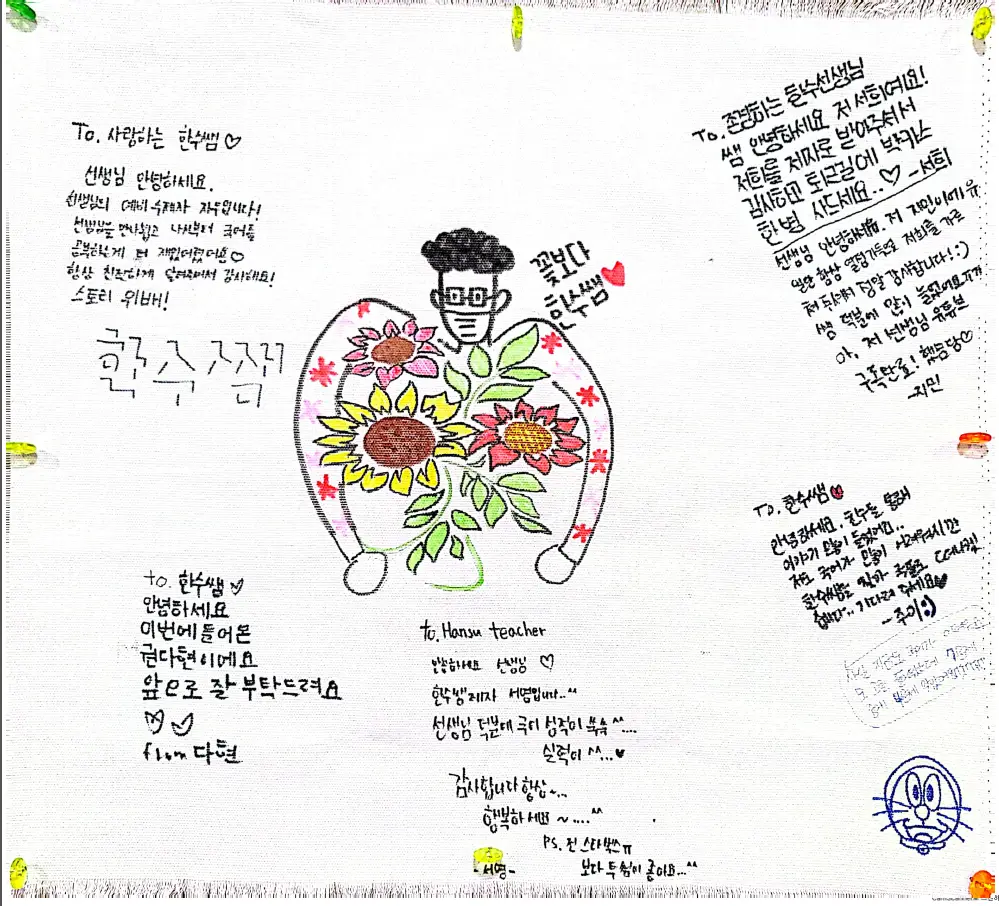 To. 사랑하는 한수쌤♡
선생님 안녕하세요.
선생님의 예비 수제자 자두입니다!
선생님을 만나뵙고 나서부터 국어를
공부하는게 더 재밌어졌어요♡
항상 친절하게 알려주셔서 감사해요!
스토리 위배!
한수쨈
꽃보다
한수쌤♥
To. 존경하는 한수선생님
쌤 안녕하세요 저 서희예요!
저희를 제자로 받아주셔서
감사하고 퇴근길에 박카스
한 병 사드세요..♡ -서희
선생님 안녕하세욤. 저 지민이에유
일단 항상 열정가득으로 저희를 가르
쳐 주셔서 정말 감사합니다!:)
쌤 덕분에 많이 늘었어요ㅠㅠ
아, 저 선생님 유튜브
구독한료! 했음당♡
-지민
To. 한수쌤♥
안녕하세요. 한수를 통해
이야기 많이 들었어요..
저도 국어가 많이 어려워서
한수쌤을
기다려 주세요♥
-주이:)
to. 한수쌤♡
안녕하세요
이번에 들어온
권다현이에요
앞으로 잘 부탁드려요
♡♡
from 다현
to. Hansu teacher
안녕하세요 선생님 ♡
한수쌤제자 서영입니다..^^
선생님 덕분에 국어 성적이 쑥쑥 ^^....
실력이 ^^...♥
감사합니다 항상~...
행복하세요 ~ ....^^
PS. 전 스타벅스ㅠ
보다 투썸이 좋아요...^^
-서영-